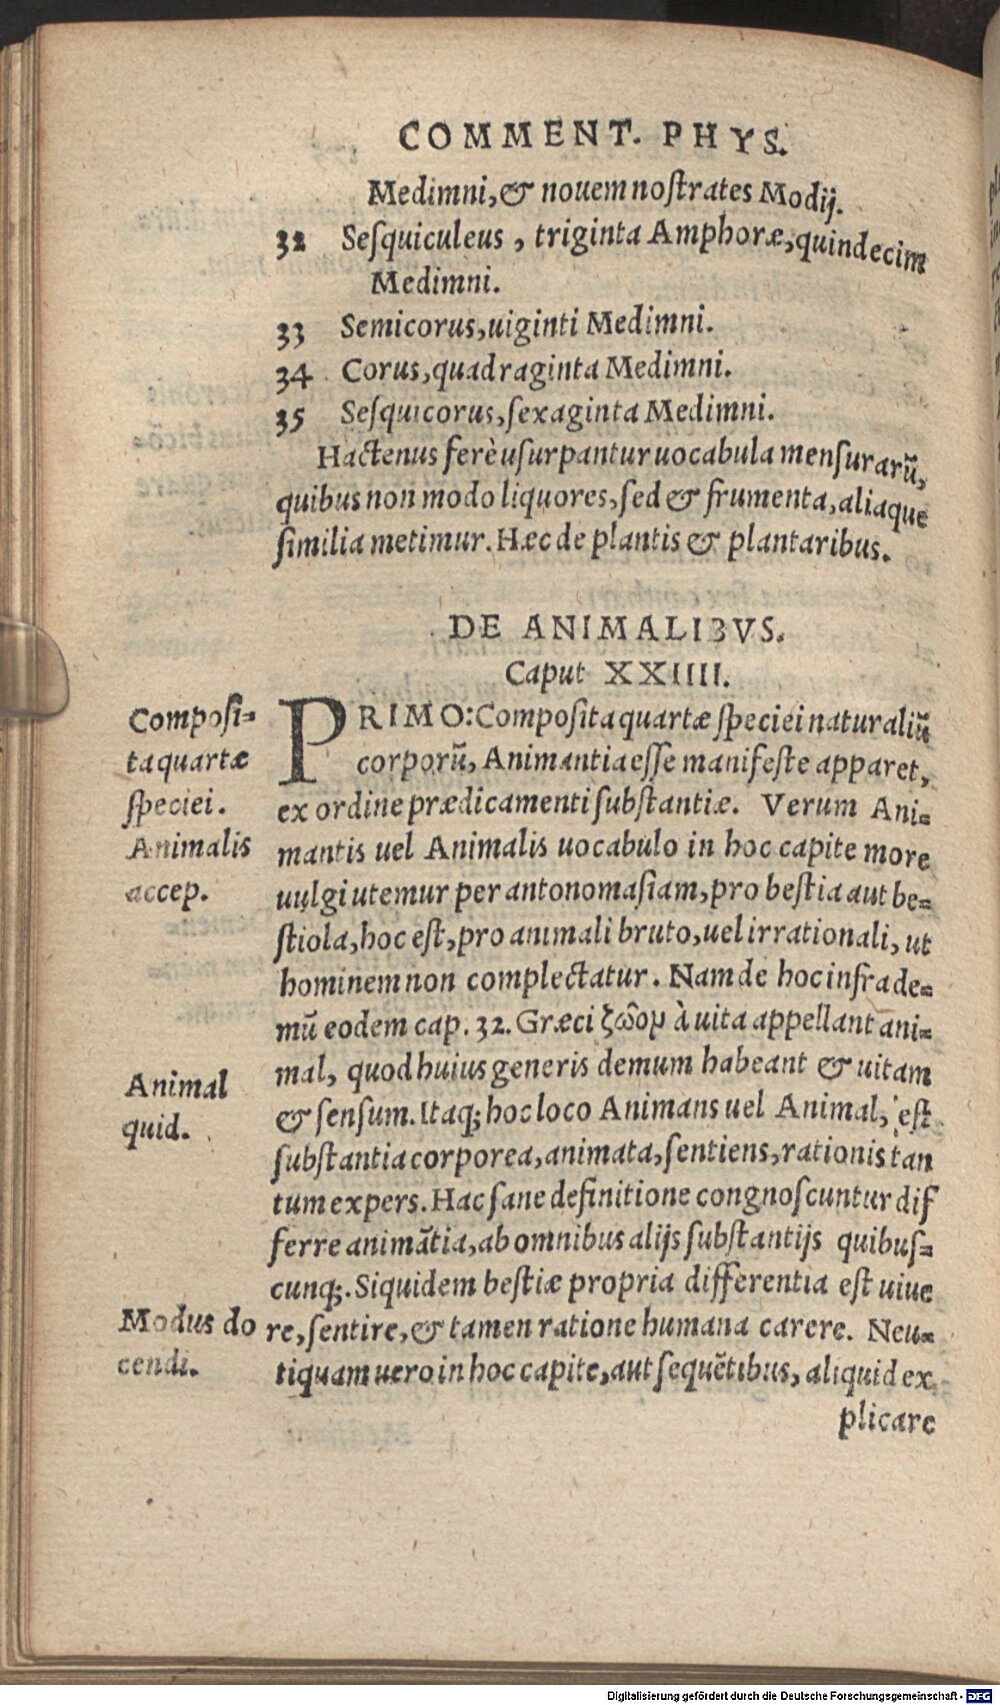 COMMENT. PHYS.
Medimni, & nouem nostrates Modij.
32 Sesquiculeus, triginta Amphoræ, quindecim
Medimni.
33 Semicorus, uiginti Medimni.
34 Corus, quadraginta Medimni.
35 Sesquicorus, sexaginta Medimni.
Hactenus ferè usurpantur uocabula mensurarũ,
quibus non modo liquores, sed & frumenta, aliaque
similia metimur. Hæc de plantis & plantaribus.
DE ANIMALIBVS.
Caput XXIIII.
Composi=
ta quartæ
speciei.
Animalis
accep.
PRIMO: Composita quartæ speciei naturaliũ
corporũ, Animantia esse manifeste apparet,
ex ordine prædicamenti substantiæ. Verum Ani=
mantis uel Animalis uocabulo in hoc capite more
uulgi utemur per antonomasiam, pro bestia aut be=
stiola, hoc est, pro animali bruto, uel irrationali, ut
hominem non complectatur. Nam de hoc infra de=
mũ eodem cap. 32. Græci ζῶομ à uita appellant ani=
mal, quod huius generis demum habeant & uitam
Animal
quid.
& sensum. Itaq; hoc loco Animans uel Animal, est
substantia corporea, animata, sentiens, rationis tan
tum expers. Hac sane definitione congnoscuntur dif
ferre animãtia, ab omnibus alijs substantijs quibus=
cunq;. Siquidem bestiæ propria differentia est uiue
Modus do
cendi.
re, sentire, & tamen ratione humana carere. Neu=
tiquam uero in hoc capite, aut sequẽtibus, aliquid ex
plicare
Digitalisierung gefördert durch die Deutsche Forschungsgemeinschaft - DFG